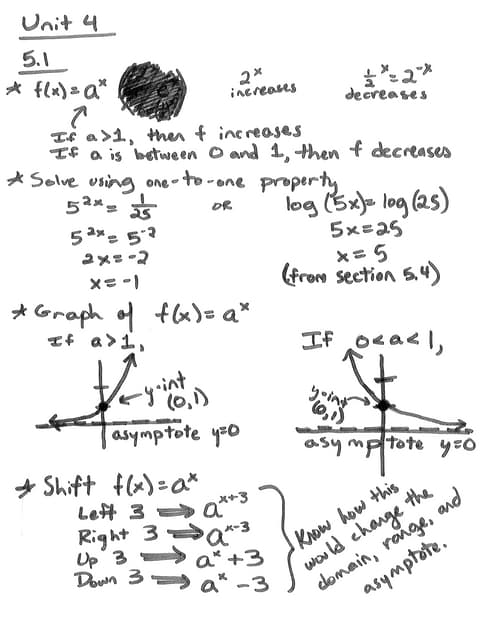 Unit 4
5.1
* f(x)=aˣ
2ˣ increases
½ˣ=2⁻ˣ decreases
If a>1, then f increases
If a is between 0 and 1, then f decreases
* Solve using one-to-one property
5²ˣ = 1/25 OR log(5x)=log(25)
5²ˣ = 5⁻² 5x=25
2x=-2 x=5
x=-1 (from section 5.4)
* Graph of f(x)=aˣ
If a>1,
y-int
(0,1)
asymptote y=0
If 0<a<1,
y-int
(0,1)
asymptote y=0
* Shift f(x)=aˣ
Left 3 ⟹ aˣ⁺³
Right 3 ⟹ aˣ⁻³
Up 3 ⟹ aˣ+3
Down 3 ⟹ aˣ-3
Know how this
would change the
domain, range, and
asymptote.